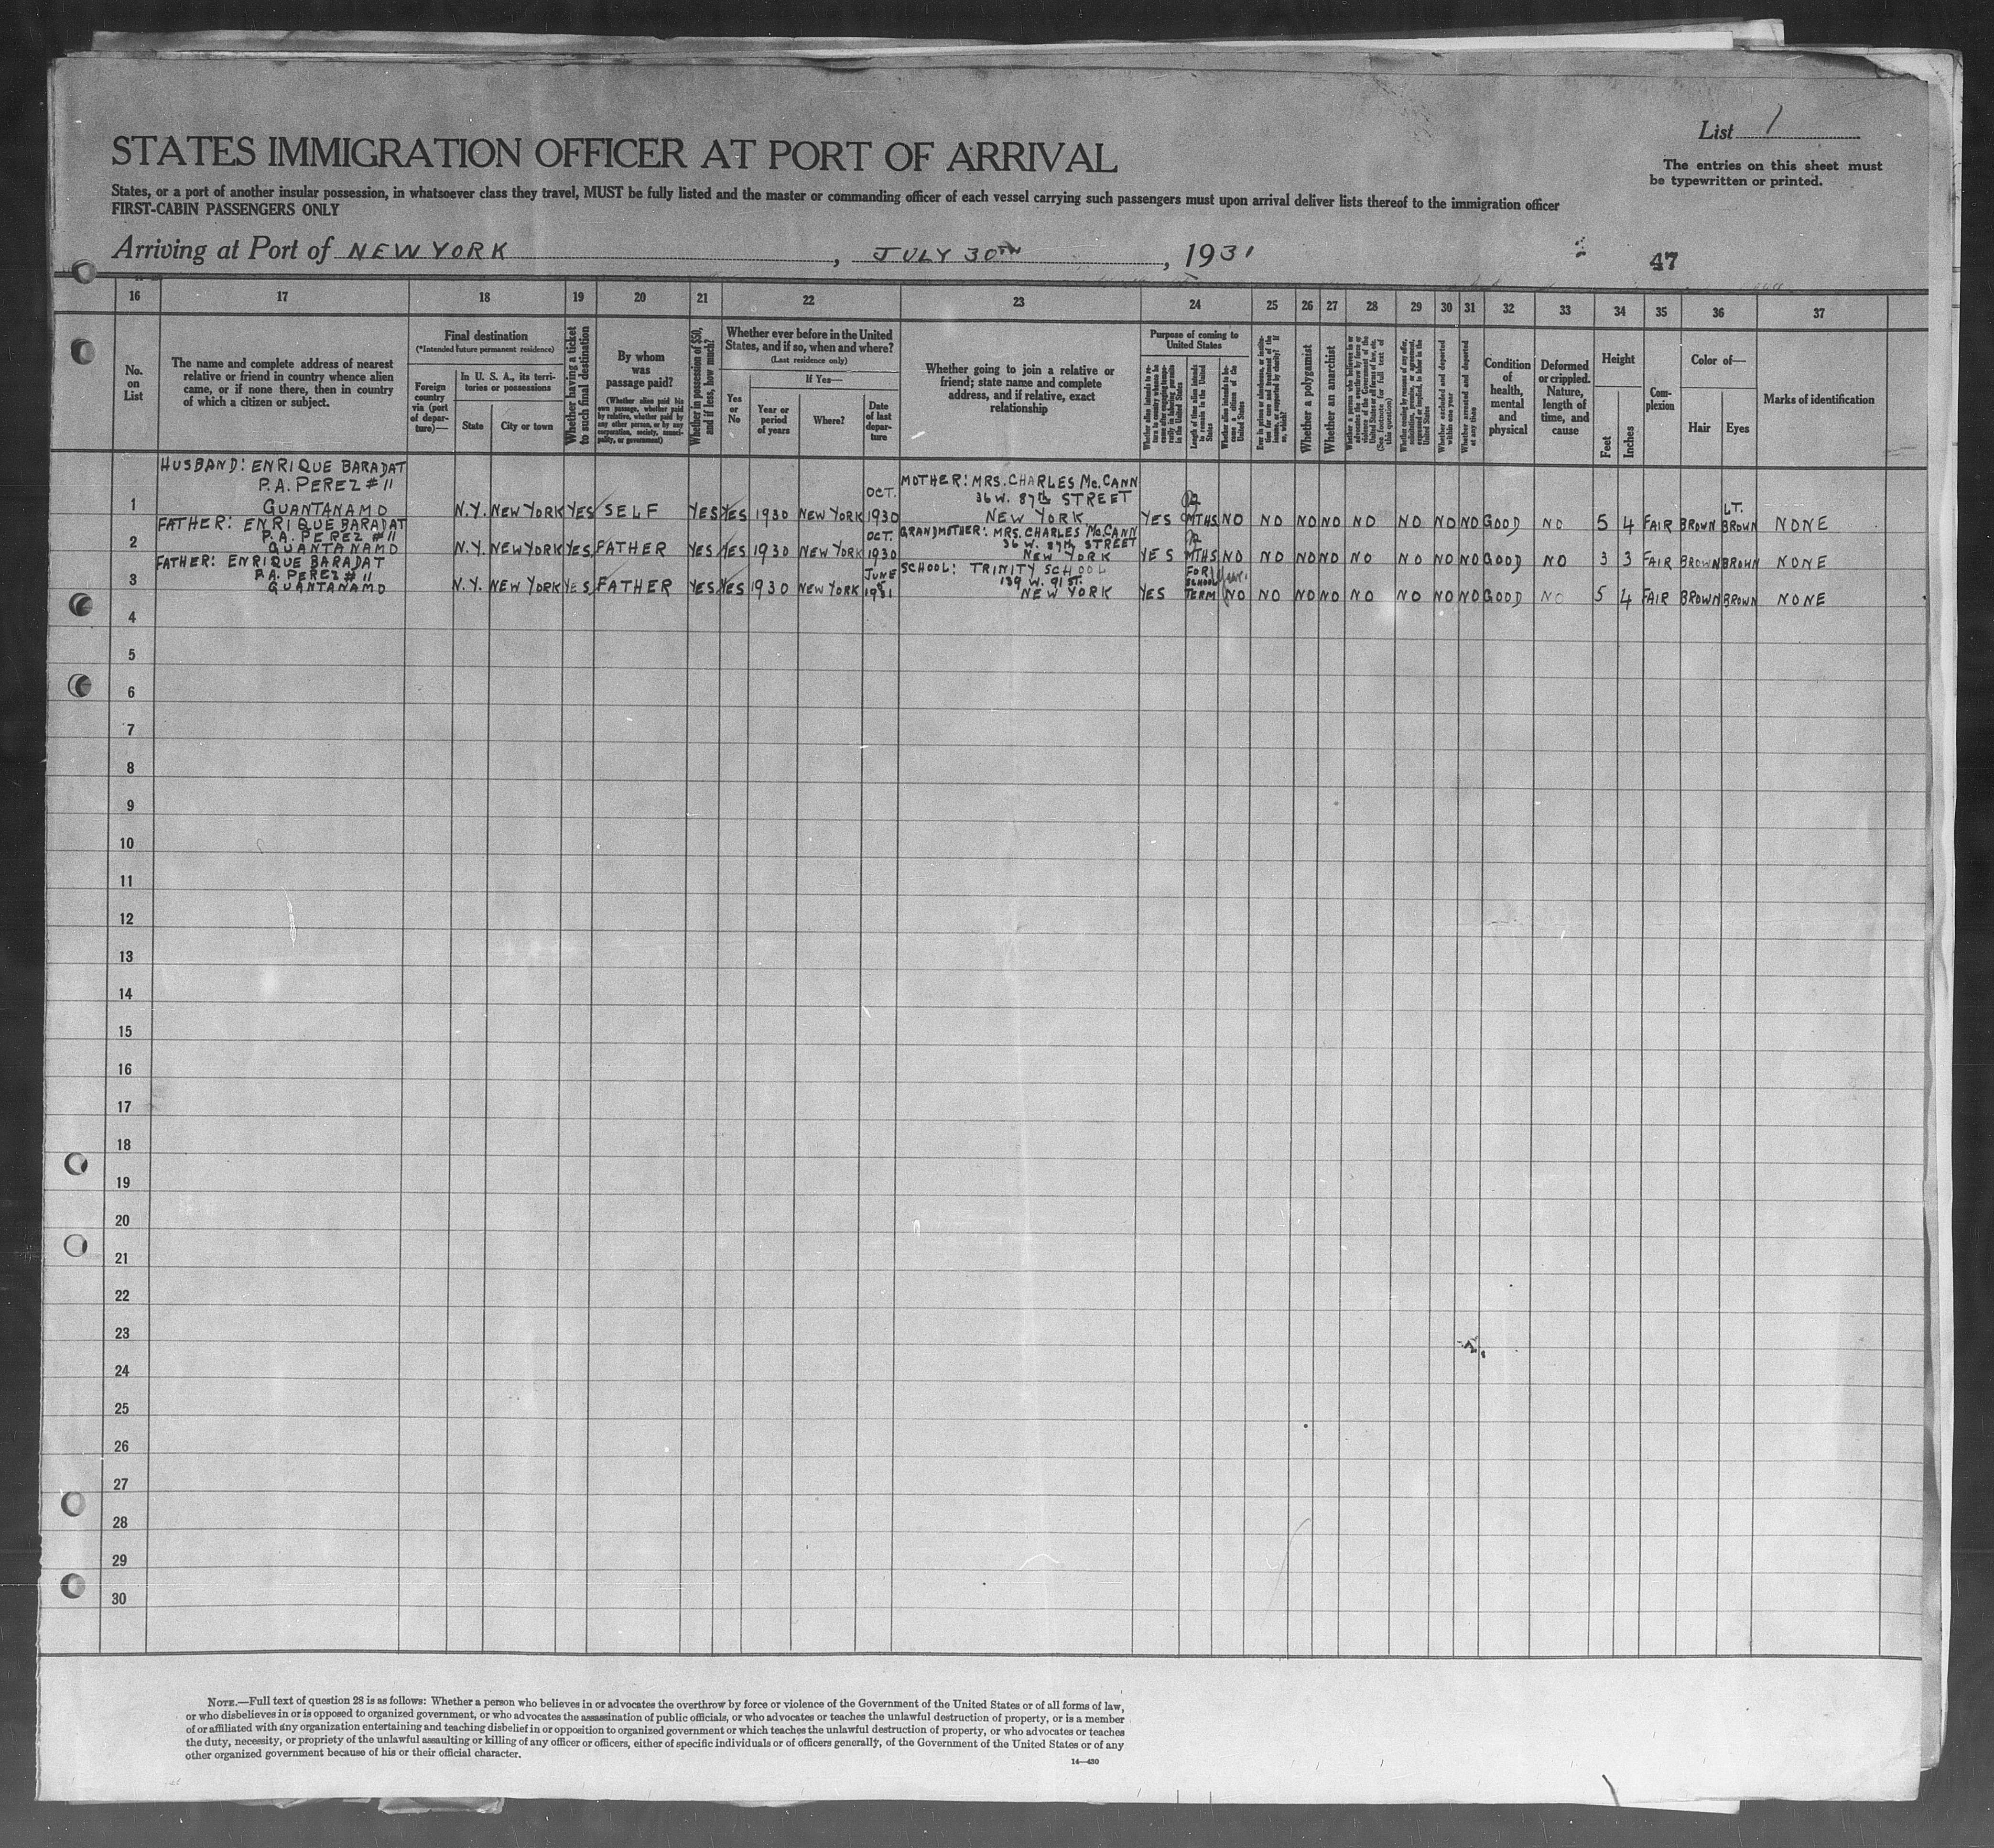 List 1
The entries on this sheet must
be typewritten or printed.
STATES IMMIGRATION OFFICER AT PORT OF ARRIVAL
States, or a port of another insular possession, in whatsoever class they travel, MUST be fully listed and the master or commanding officer of each vessel carrying such passengers must upon arrival deliver lists thereof to the immigration officer
FIRST-CABIN PASSENGERS ONLY
Arriving at Port of NEW YORK, JULY 30TH, 1931
47
16 17 18 19 20 21 22 23 24 25 26 27 28 29 30 31 32 33 34 35 36 37
No. on List
The name and complete address of nearest
relative or friend in country whence alien
came, or if none there, then in country
of which a citizen or subject.
Final destination
(*Intended future permanent residence)
Foreign country via (port of departure)—
In U. S. A., its territories or possessions
State
City or town
Whether having a ticket to such final destination
By whom was passage paid?
(Whether alien paid his own passage, whether paid by relative, whether paid by any other person, or by any corporation, society, municipality, or government)
Whether in possession of $50, and if less, how much?
Whether ever before in the United
States, and if so, when and where?
(Last residence only)
Yes or No
If Yes—
Year or period of years
Where?
Date of last departure
Whether going to join a relative or
friend; state name and complete
address, and if relative, exact
relationship
Purpose of coming to United States
Length of time alien intends to remain in the United States
Whether alien intends to become a citizen of the United States
Whether a polygamist
Whether an anarchist
(See footnote for full text of this question)
Whether excluded and deported within one year
Whether arrested and deported at any time
Condition of health, mental and physical
Deformed or crippled. Nature, length of time, and cause
Height
Feet
Inches
Complexion
Color of—
Hair
Eyes
Marks of identification
1 HUSBAND: ENRIQUE BARADAT
P.A. PEREZ #11
GUANTANAMO N.Y. NEW YORK YES SELF YES YES 1930 NEW YORK OCT. 1930 MOTHER: MRS. CHARLES Mc.CANN
36 W. 87th STREET
NEW YORK YES MTHS NO NO NO NO NO NO NO NO GOOD NO 5 4 FAIR BROWN LT. BROWN NONE
2 FATHER: ENRIQUE BARADAT
P.A. PEREZ #11
GUANTANAMO N.Y. NEW YORK YES FATHER YES YES 1930 NEW YORK OCT. 1930 GRANDMOTHER: MRS. CHARLES Mc.CANN
36 W. 87th STREET
NEW YORK YES MTHS NO NO NO NO NO NO NO NO GOOD NO 3 3 FAIR BROWN BROWN NONE
3 FATHER: ENRIQUE BARADAT
P.A. PEREZ #11
GUANTANAMO N.Y. NEW YORK YES FATHER YES YES 1930 NEW YORK JUNE 1931 SCHOOL: TRINITY SCHOOL
139 W. 91 ST.
NEW YORK YES FOR SCHOOL TERM NO NO NO NO NO NO NO NO GOOD NO 5 4 FAIR BROWN BROWN NONE
4
5
6
7
8
9
10
11
12
13
14
15
16
17
18
19
20
21
22
23
24
25
26
27
28
29
30
NOTE.—Full text of question 28 is as follows: Whether a person who believes in or advocates the overthrow by force or violence of the Government of the United States or of all forms of law,
or who disbelieves in or is opposed to organized government, or who advocates the assassination of public officials, or who advocates or teaches the unlawful destruction of property, or is a member
of or affiliated with any organization entertaining and teaching disbelief in or opposition to organized government or which teaches the unlawful destruction of property, or who advocates or teaches
the duty, necessity, or propriety of the unlawful assaulting or killing of any officer or officers, either of specific individuals or of officers generally, of the Government of the United States or of any
other organized government because of his or their official character.
14—430